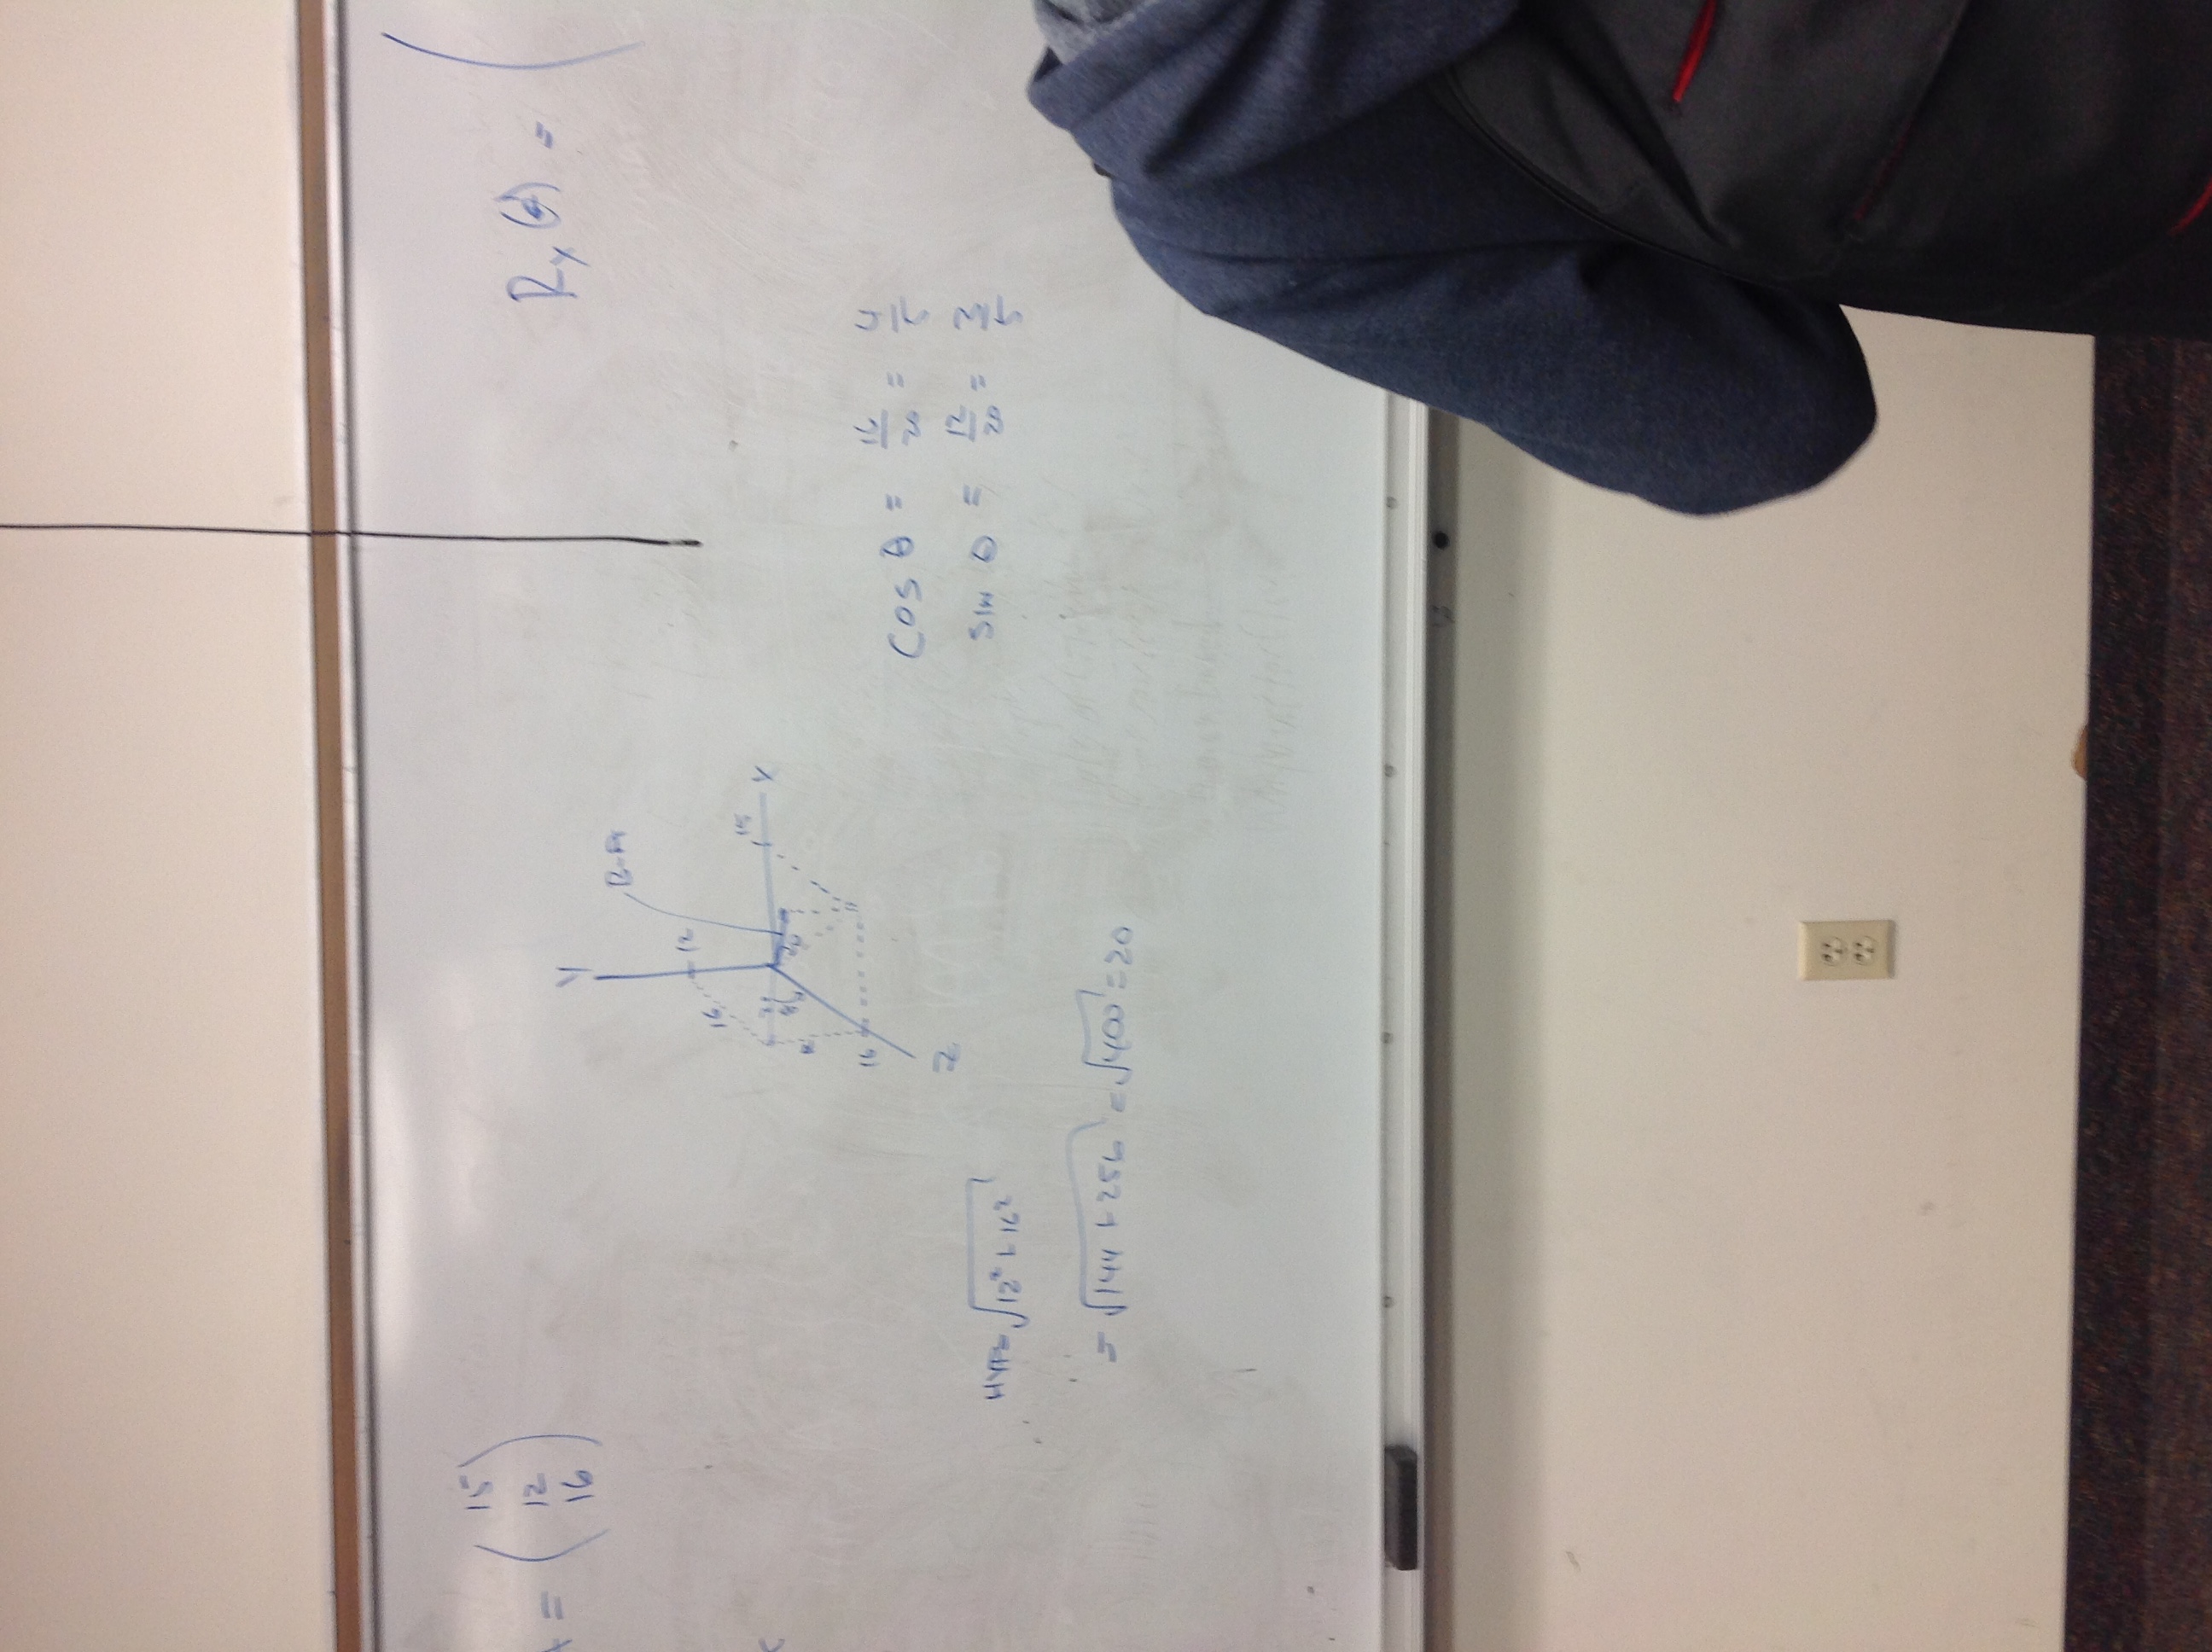 = ( 15
12
16 )
Y
B-A
12
16
15
X
16
Z
HYP= √12² + 16²
= √144 + 256 = √400 = 20
cos θ = 16/20 = 4/5
sin θ = 12/20 = 3/5